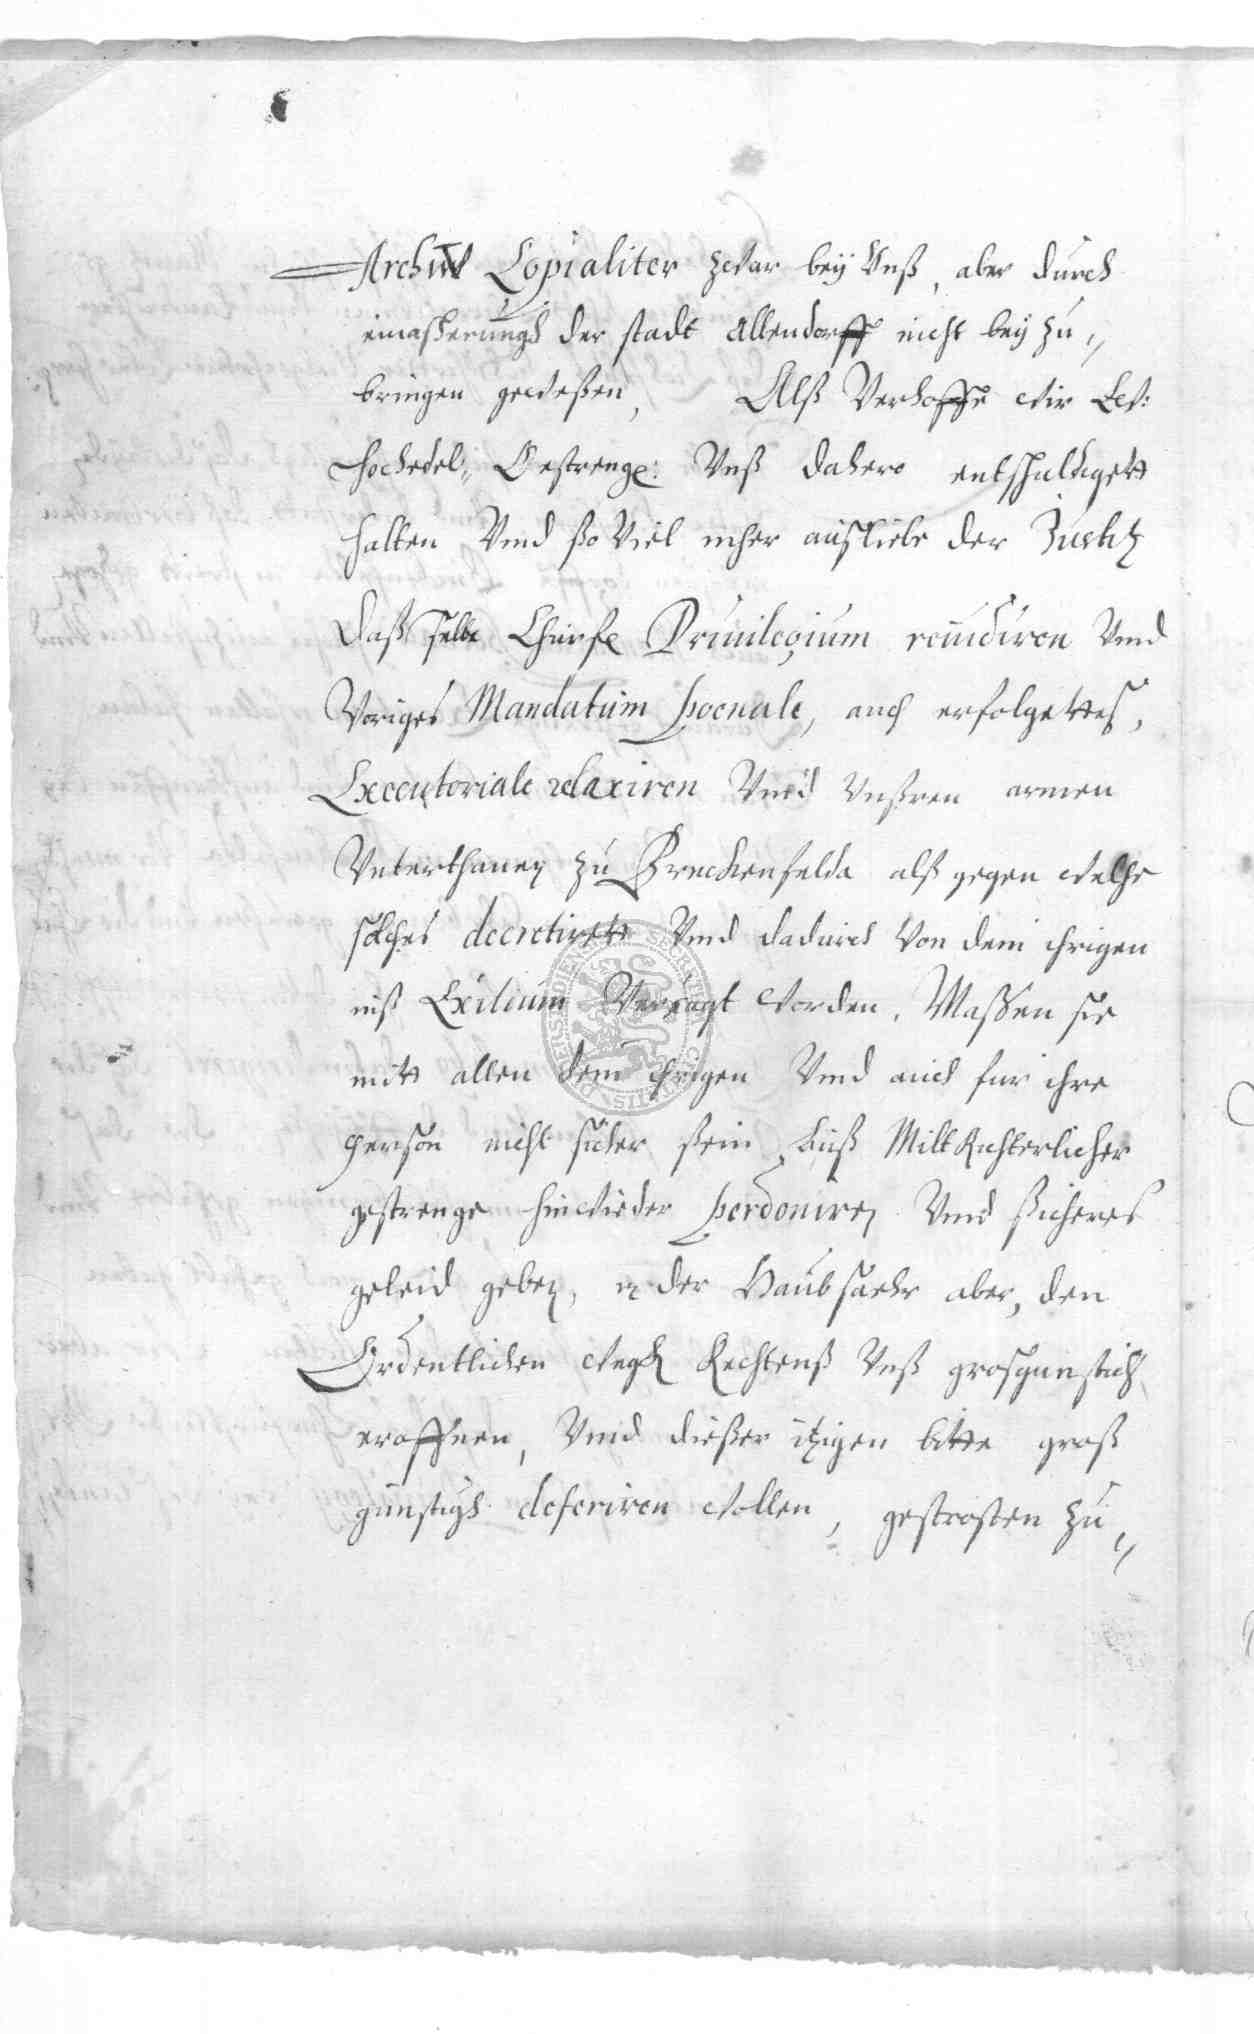 Archivo Copialiter zwar bey Vnß, aber durch
einaßcherungh der stadt Allendorff nicht bey zu„
bringen geweßen, Alß Verhoffe wir Ew:
Hochedel„ Gestrenge: Vnß dahero entschuldigett
halten Vnd ßo Viel meher auß liebe der Justitz
daß selbe Churfe Priuilegium reuidiren Vnd
Voriges Mandatum poenale, auch erfolgettes,
Executoriale relaxiren Vnd Vnßren armen
Vnterthanen zu Breckenfelda alß gegen welche
solches decretirett Vnd dadurch Von dem ihrigen
inß Exilium Verjagt worden, Maßen sie
mitt allen dem ihrigen Vnd auch fur ihre
Person nicht sicher ßein, auß Milt Richterlicher
gestrenge hinwieder perdoniren Vnd sicheres
geleid geben, in der Haubsache aber, den
Ordentlichen wegh Rechtenß Vnß grosgunstich
eroffnen, Vnd dießer itzigen bitte groß
gunstigh deferiren wollen, gestrosten zu„
SIGILLUM CIVITATIS